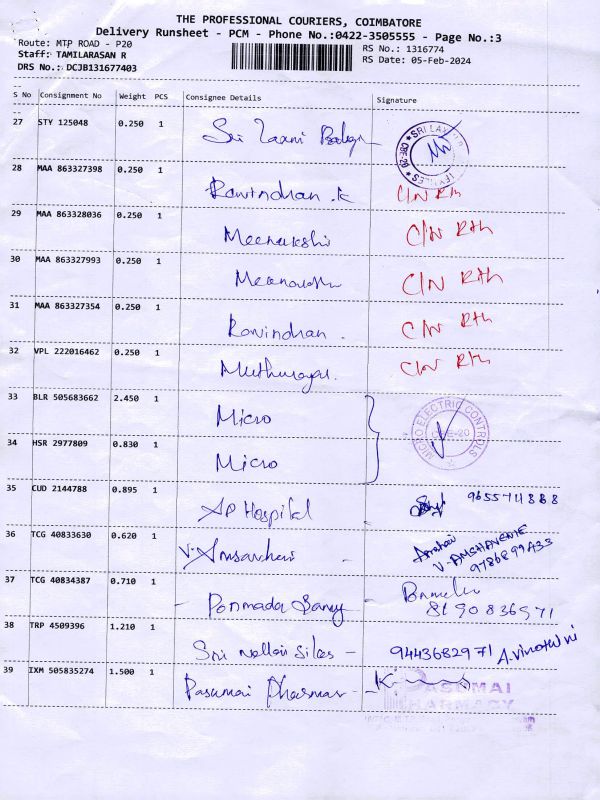 THE PROFESSIONAL COURIERS, COIMBATORE
Delivery Runsheet - PCM - Phone No.:0422-3505555 - Page No.:3
Route: MTP ROAD - P20 RS No.: 1316774
Staff: TAMILARASAN R RS Date: 05-Feb-2024
DRS No.: DCJB131677403
S No Consignment No Weight PCS Consignee Details Signature
27 STY 125048 0.250 1 Sri Laxmi
28 MAA 863327398 0.250 1 Ravindhan.K C/N Rth
29 MAA 863328036 0.250 1 Meenakshi C/N Rth
30 MAA 863327993 0.250 1 C/N Rth
31 MAA 863327354 0.250 1 Ravindhan. C/N Rth
32 VPL 222016462 0.250 1 C/N Rth
33 BLR 505683662 2.450 1 Micro
MICRO ELECTRIC CONTROLS
CBE-20
34 HSR 2977809 0.830 1 Micro
35 CUD 2144788 0.895 1 AP Hospital
36 TCG 40833630 0.620 1 V.
V-AMSHAVENIE
9786899433
37 TCG 40834387 0.710 1 Ponmada - 8190836971
38 TRP 4509396 1.210 1 Sri silks - 9443682971
39 IXM 505835274 1.500 1 Pasumai
PASUMAI
PHARMACY